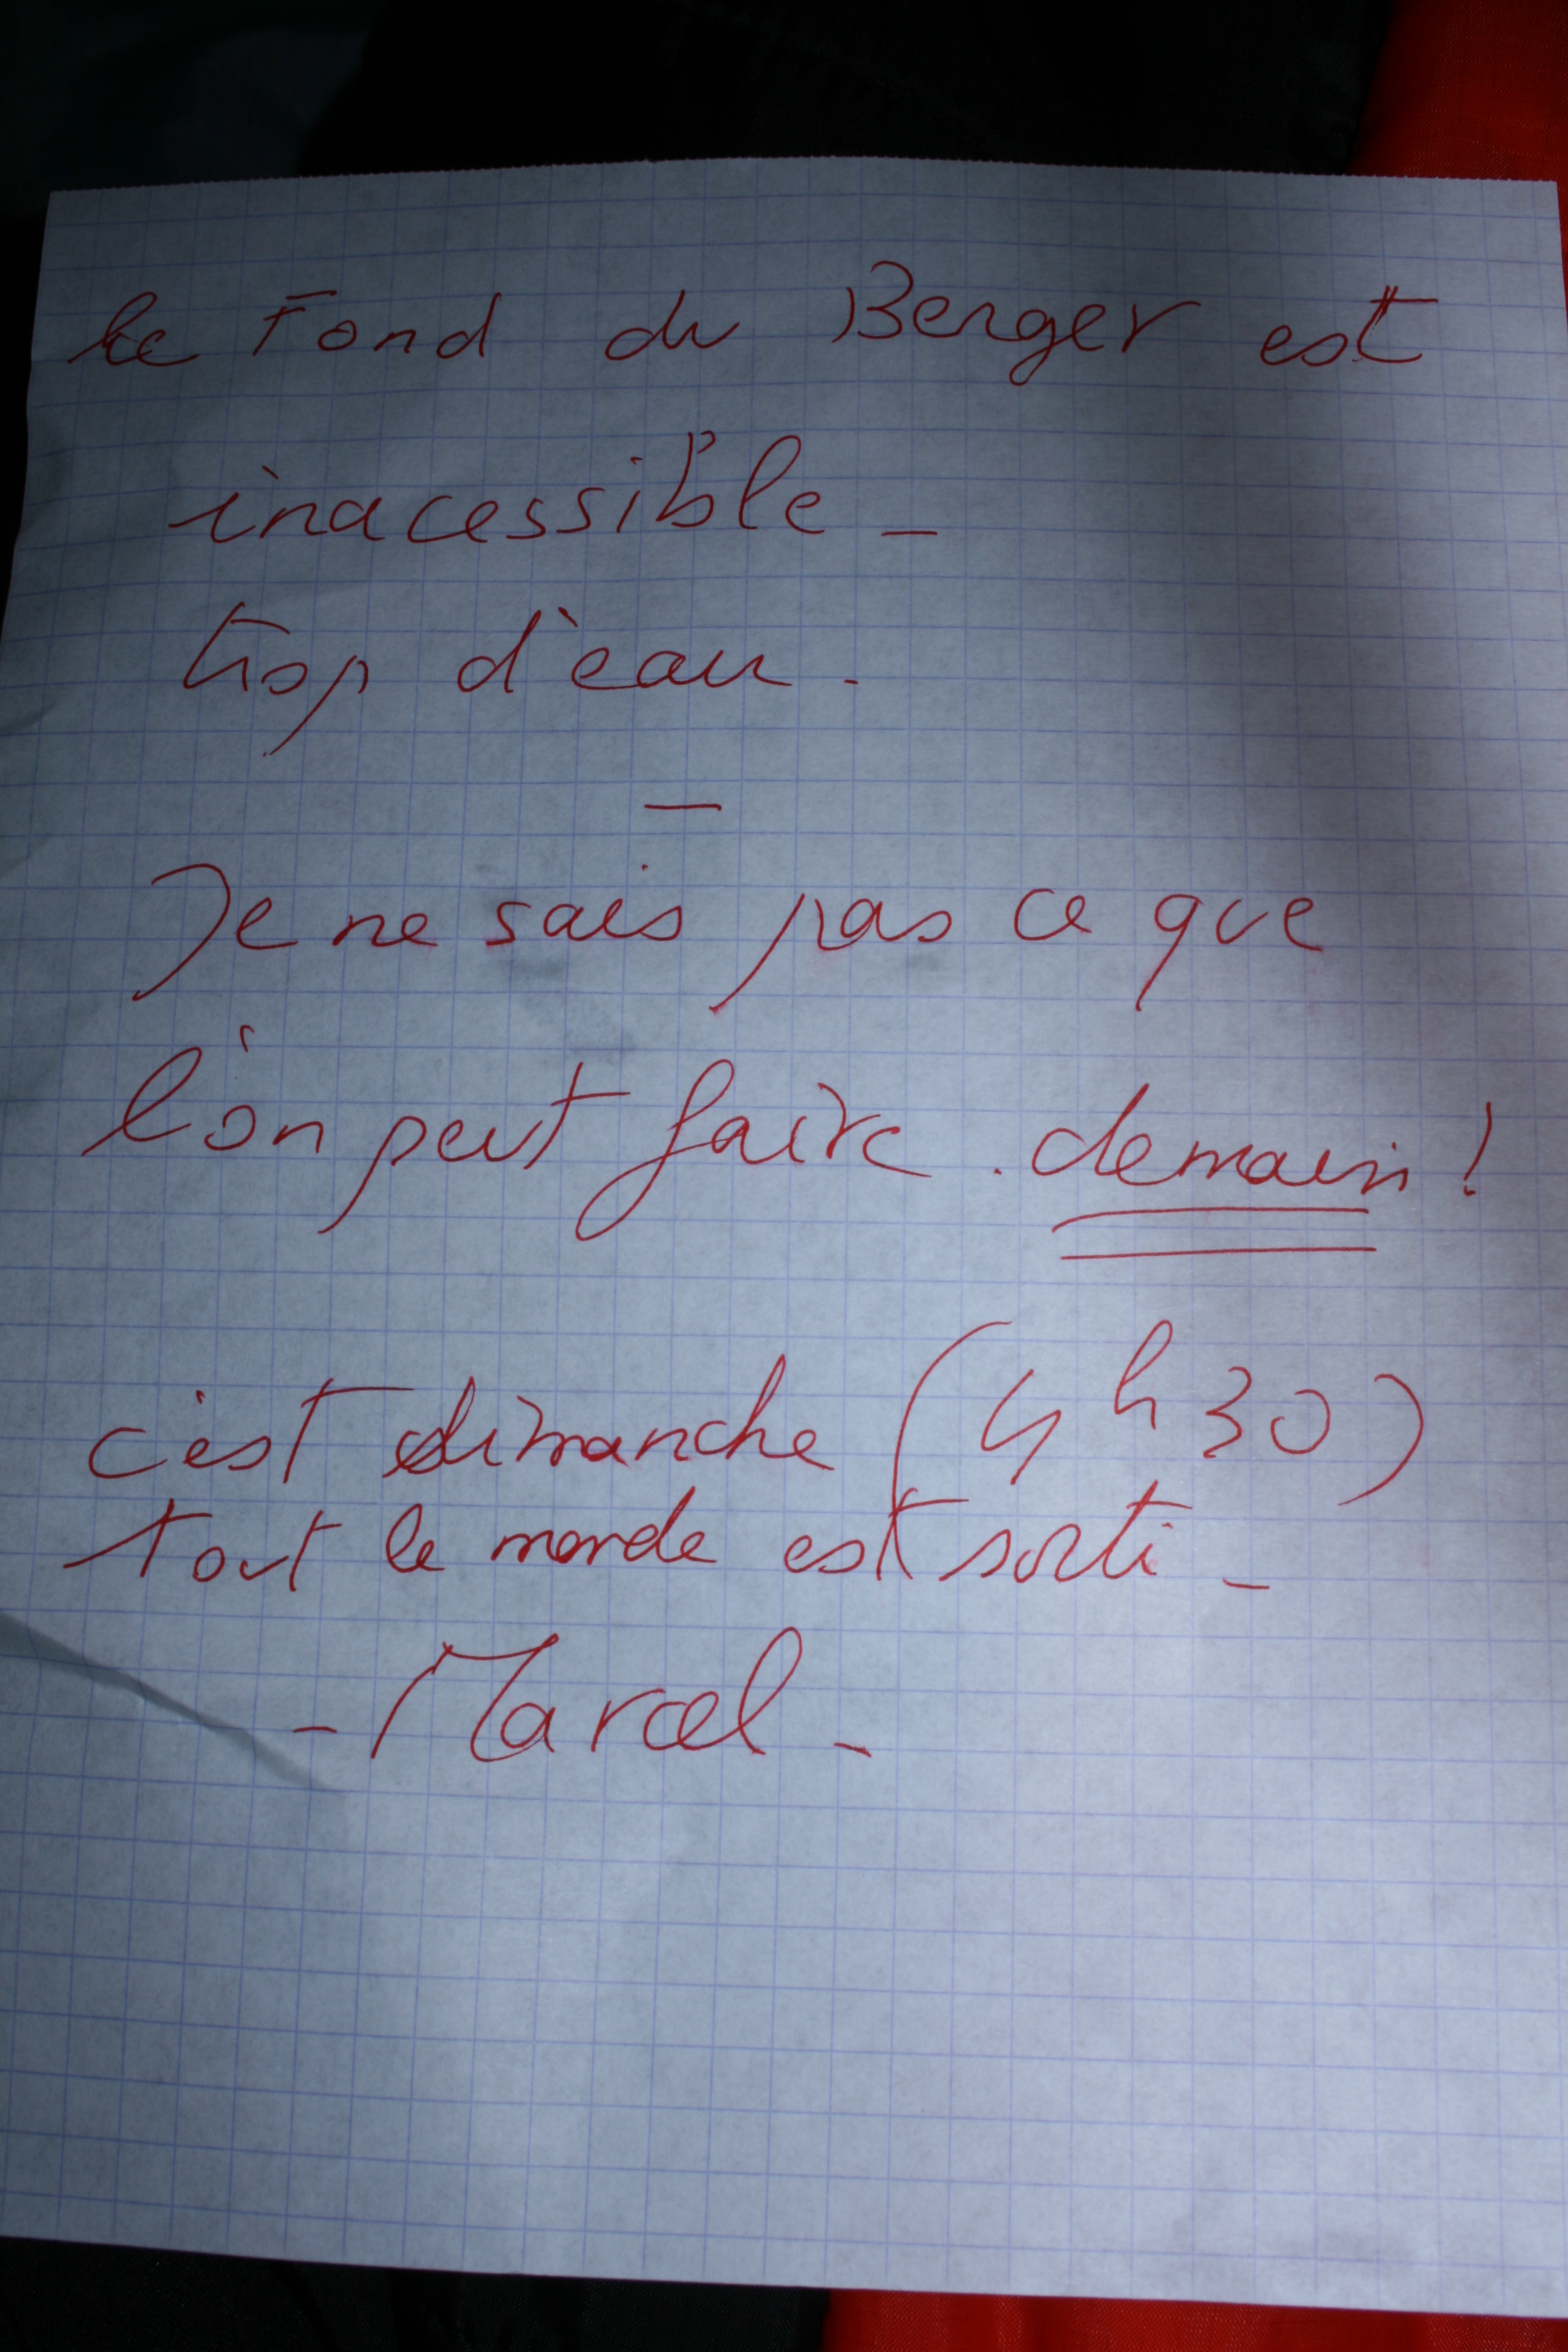 le Fond du Berger est
inacessible -
trop d'eau.
—
Je ne sais pas ce que
l'on peut faire. demain!
c'est dimanche (4h30)
tout le monde est sorti -
- Marcel -